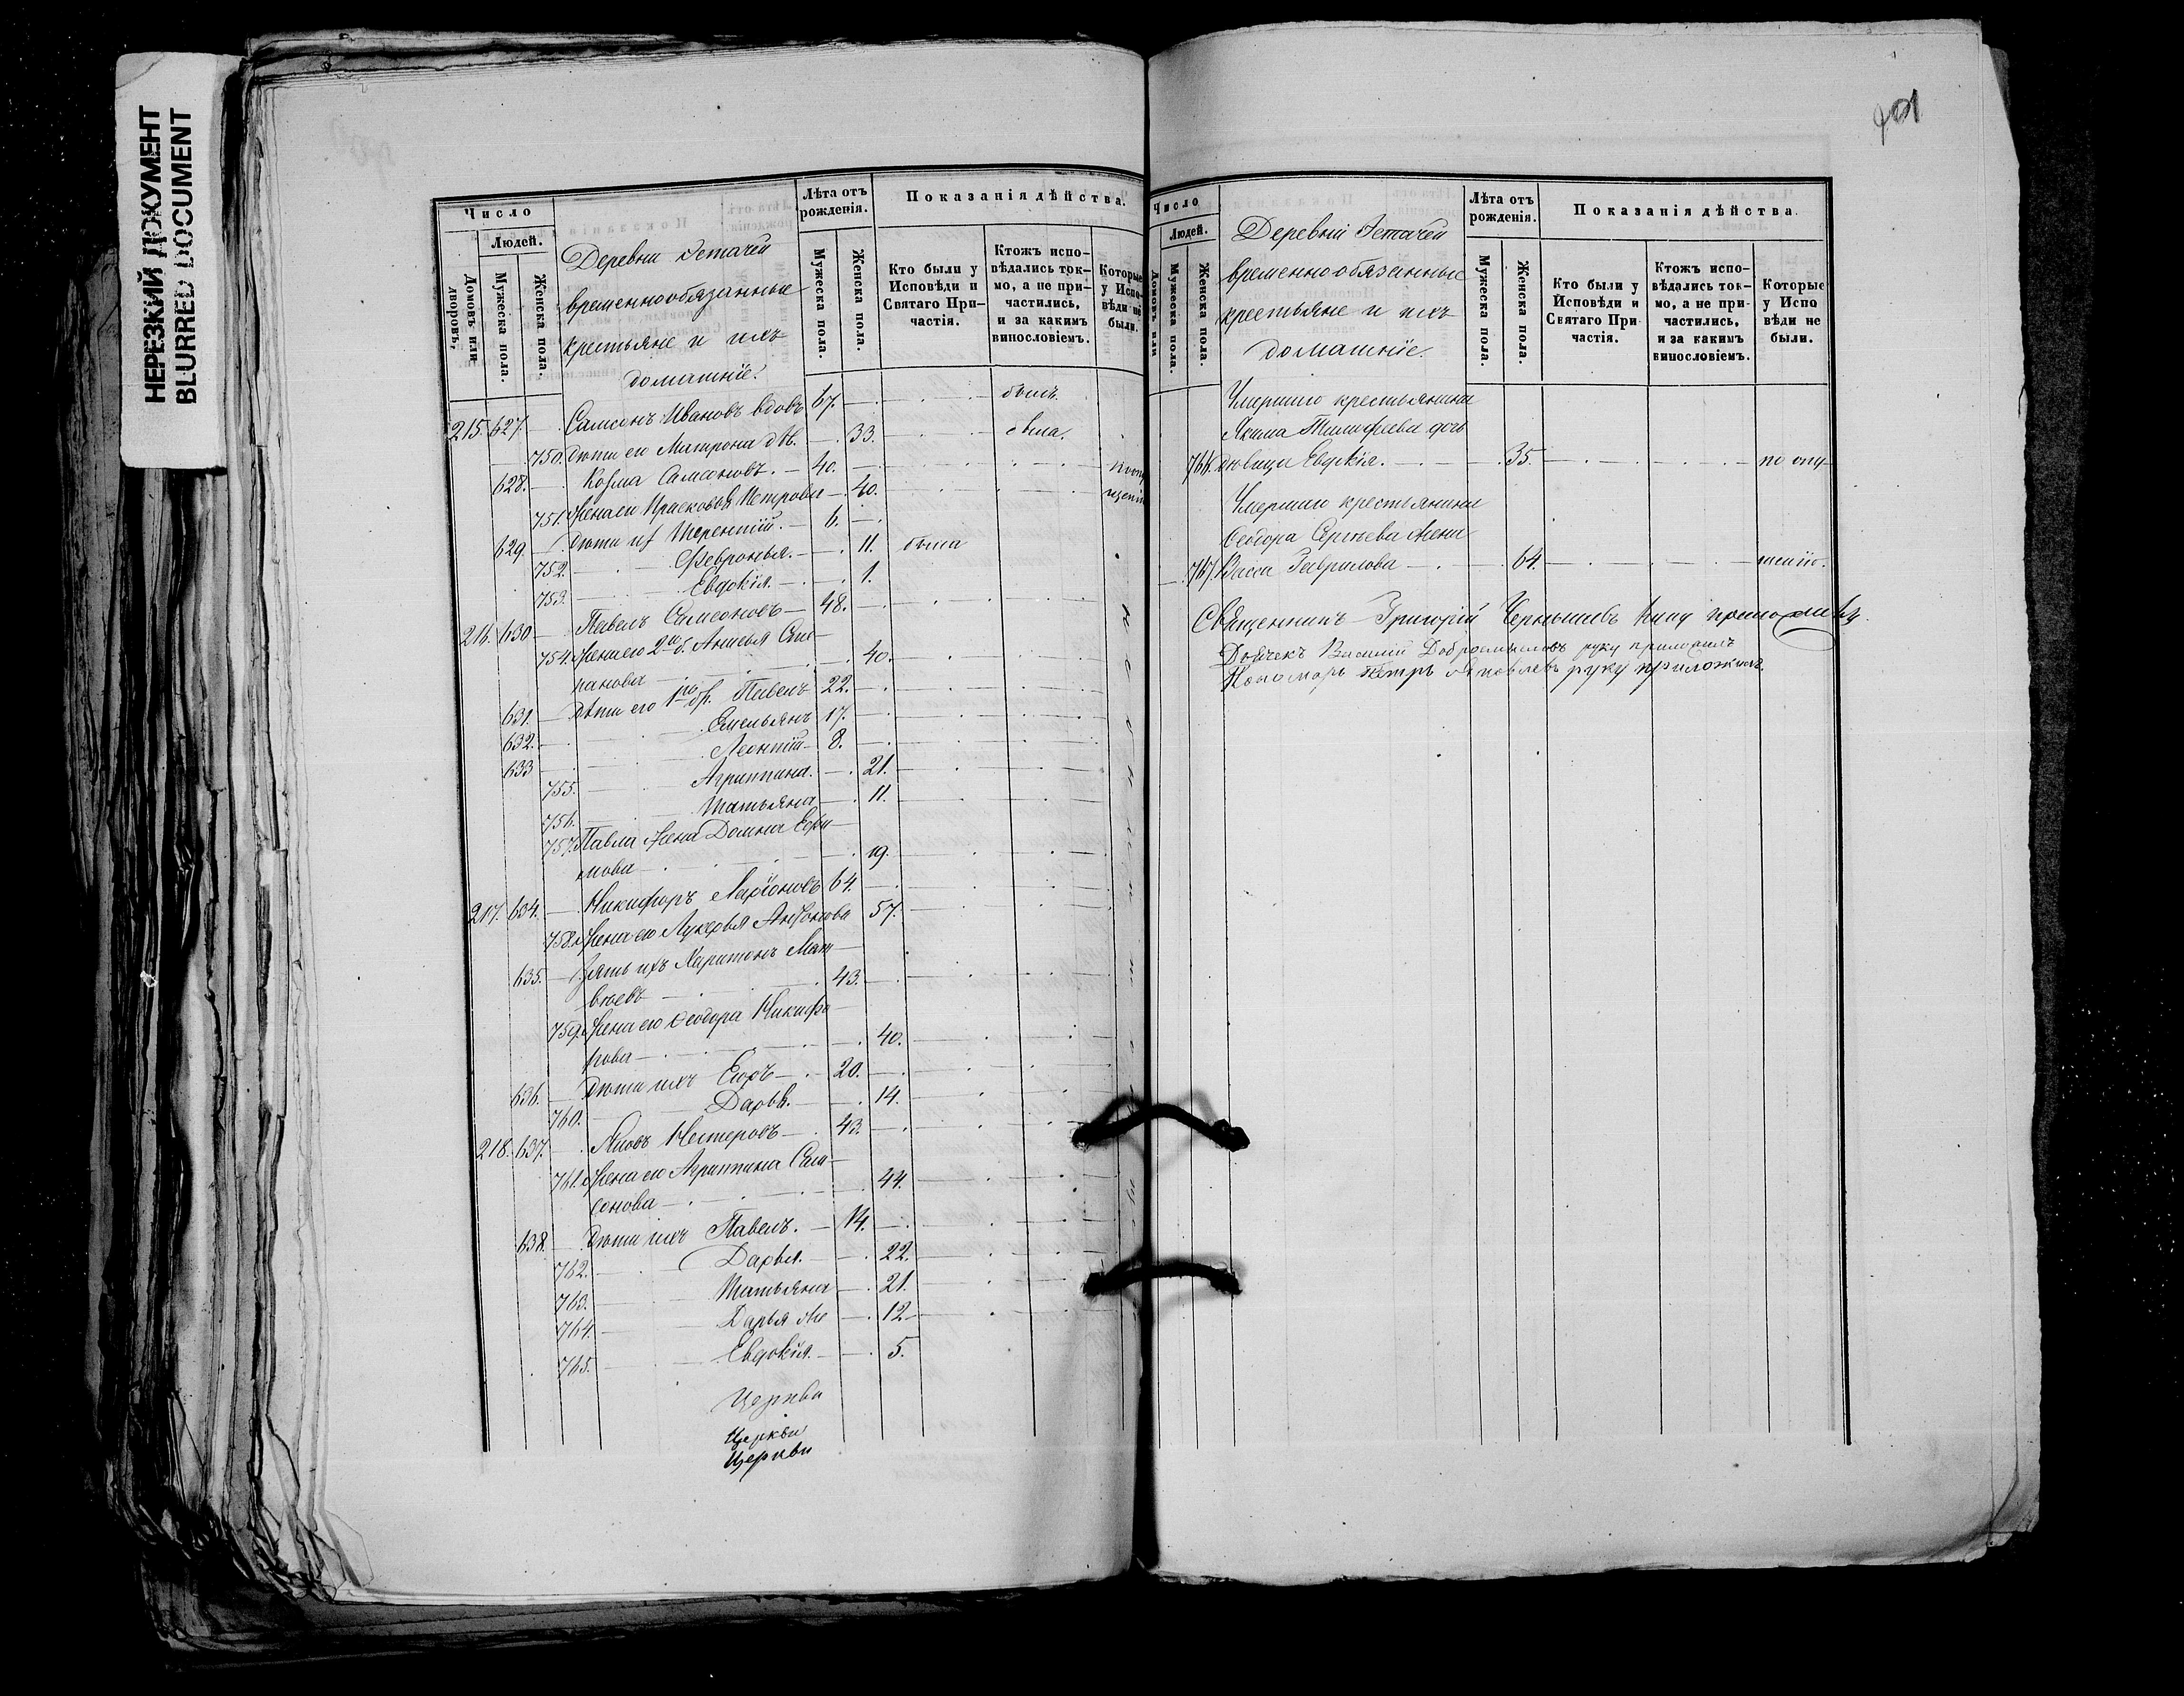 НЕРЕЗКИЙ ДОКУМЕНТ
BLURRED DOCUMENT
Число
Людей.
Домовъ или дворовъ,
Мужеска пола.
Женска пола.
Деревни
временнообязанные
крестьяне и ихъ
домашніе.
Лѣта отъ рожденія.
Мужеска пола.
Женска пола.
Показанія дѣйства.
Кто были у Исповѣди и Святаго Причастія.
Ктожъ исповѣдались токмо, а не причастились, и за какимъ винословіемъ.
Которые у Исповѣди не были.
215. 627. Самсонъ Ивановъ вдовъ 67. былъ
750. Дѣти его Матрона дѣв. 33. была.
628. Козма Самсоновъ. 40.
751. Жена ег Прасковья Петрова 40.
629 Дѣти их Терентій. 6.
752. Февронья. 11. была
753. Евдокія. 1.
216. 630 Павелъ Самсоновъ 48.
754. Жена его 2го б. Анисья Сте-
панова 40.
631. Дѣти его 1го бр. Павелъ 22.
632. Емельянъ 17.
633 Леонтій 8.
755. Агриппина. 21.
756. Татьяна 11.
757. Павла жена Домна Ефи-
мова 19.
217. 634. Никифоръ Ларіоновъ 64.
758. Жена его Лукерья Антонова 57.
635. Зять ихъ Харитонъ Мат-
вѣевъ 43.
759. Жена его Ѳеодора Никифо-
рова 40.
636. Дѣти ихъ Егоръ 20.
760. Дарья. 14.
218. 637. Іаковъ Нестеровъ 43.
761. Жена ег Агриппина Сам-
сонова 44.
638. Дѣти ихъ Павелъ. 14.
762. Дарья. 22.
763. Татьяна 21.
764. Дарья же 12
765. Евдокія. 5.
Церкви
Церкви
Церкви
Число
Людей.
Домовъ или
Мужеска пола.
Женска пола.
Деревни
временнообязанные
крестьяне и ихъ
домашніе.
Лѣта отъ рожденія.
Мужеска пола.
Женска пола.
Показанія дѣйства.
Кто были у Исповѣди и Святаго Причастія.
Ктожъ исповѣдались токмо, а не причастились, и за какимъ винословіемъ.
Которые у Исповѣди не были.
Умершаго крестьянина
Якима Тимофеева дочь
766. дѣвица Евдокія. 35. по опу-
Умершаго крестьянина
Ѳеодора Сергѣева жена
767. Васса Гаврилова 64. щенію.
Священникъ Григорій Чернышевъ
Дьячекъ Василий Добросмысловъ руку приложилъ
Пономарь Петръ Яковлевъ руку приложилъ.